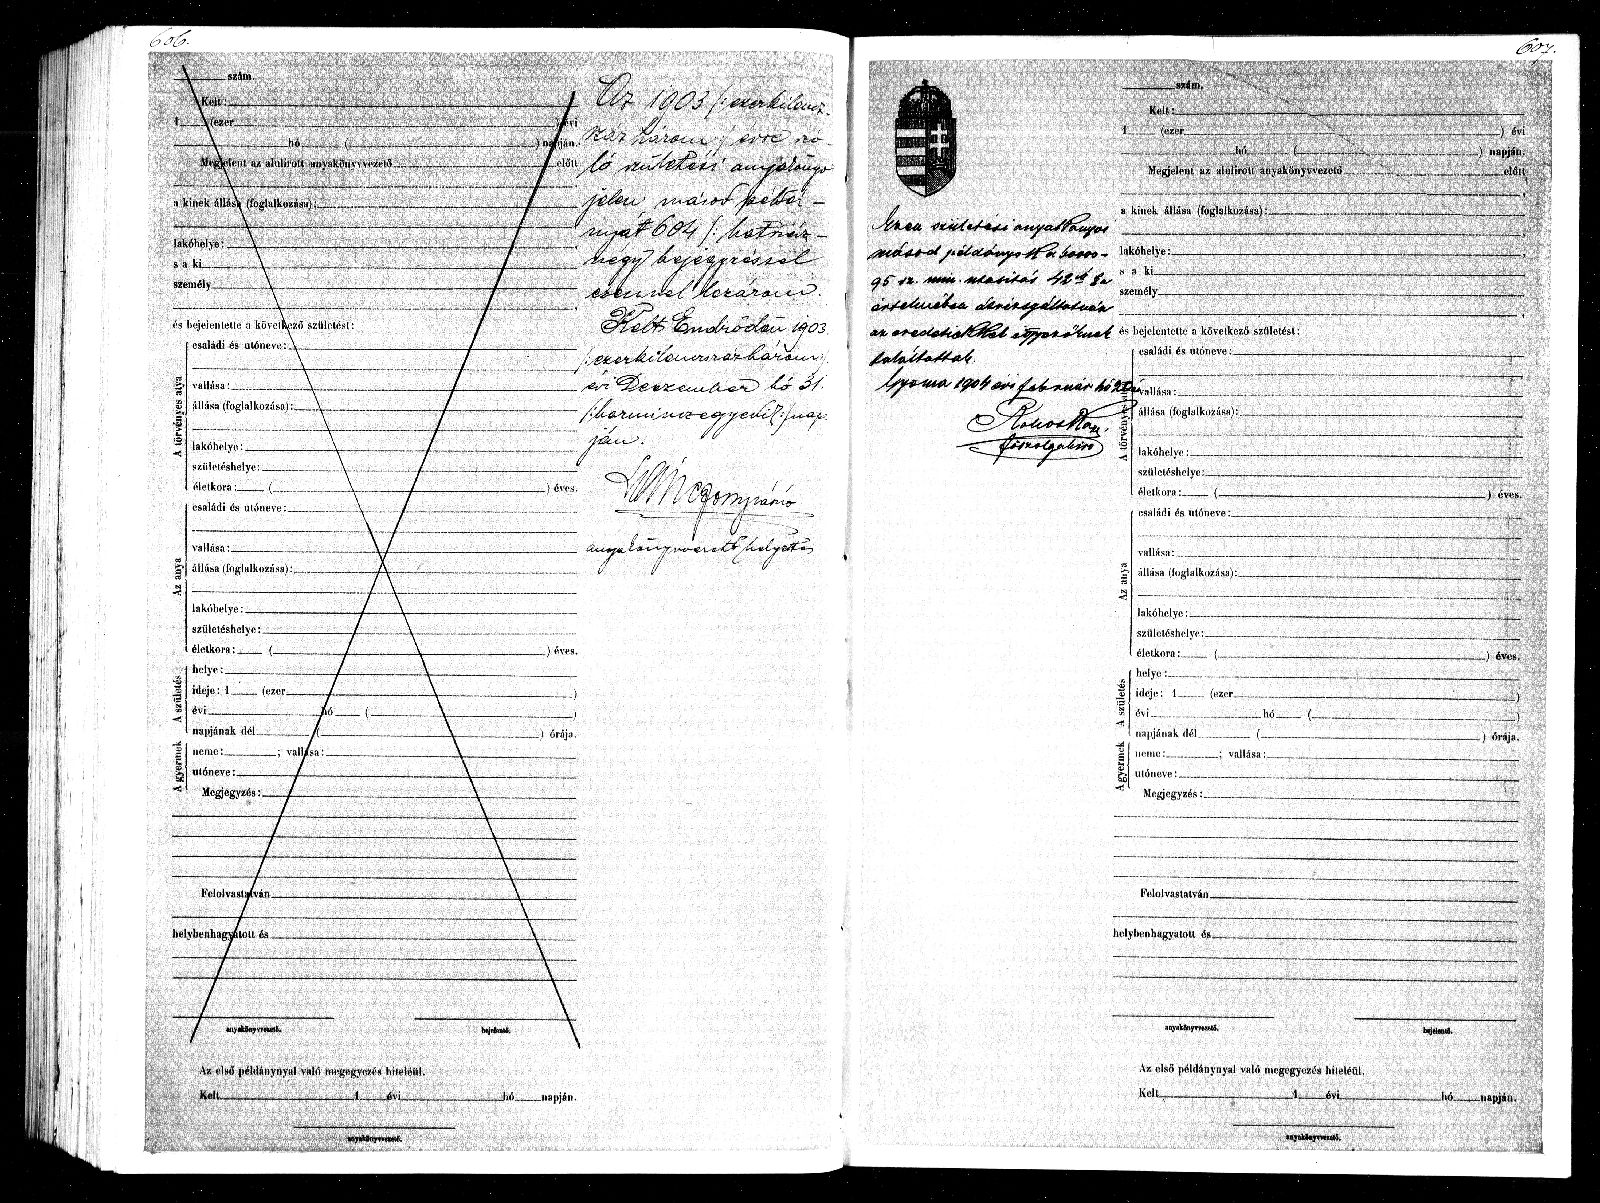 606.
szám.
Kelt:
1 (ezer ) évi
hó ( ) napján.
Megjelent az alulirott anyakönyvvezető előtt
a kinek állása (foglalkozása):
lakóhelye:
s a ki
személy
és bejelentette a következő születést:
A törvényes atya
családi és utóneve:
vallása:
állása (foglalkozása):
lakóhelye:
születéshelye:
életkora: ( ) éves.
Az anya
családi és utóneve:
vallása:
állása (foglalkozása):
lakóhelye:
születéshelye:
életkora: ( ) éves.
A születés
helye:
ideje: 1 (ezer )
évi hó ( )
napjának dél ( ) órája.
A gyermek
neme: ; vallása:
utóneve:
Megjegyzés:
Felolvastatván
helybenhagyatott és
anyakönyvvezető. bejelentő.
Az első példánynyal való megegyezés hiteléül.
Kelt 1 évi hó napján.
anyakönyvvezető.
Az 1903 /: ezerkilencz-
száz három :/ évre szó-
ló születési anyakönyv
jelen másod példá-
nyát 604 /: hatszáz-
négy bejegyzéssel
ezennel lezárom.
Kelt Endrődön 1903
/: ezerkilenczszázhárom
évi Deczember hó 31.
/: harminczegyedik :/ nap-
ján.
anyakönyvvezető helyettes
607.
Ezen születési anyakönyvi
másod példány
95 sz. min. utasitás 42 §a
értelmében átvizsgáltatván
az eredetiekkel egyezőknek
találtattak.
Gyoma 1904 évi február hó
főszolgabiró
szám.
Kelt:
1 (ezer ) évi
hó ( ) napján.
Megjelent az alulirott anyakönyvvezető előtt
a kinek állása (foglalkozása):
lakóhelye:
s a ki
személy
és bejelentette a következő születést:
A törvényes atya
családi és utóneve:
vallása:
állása (foglalkozása):
lakóhelye:
születéshelye:
életkora: ( ) éves.
Az anya
családi és utóneve:
vallása:
állása (foglalkozása):
lakóhelye:
születéshelye:
életkora: ( ) éves.
A születés
helye:
ideje: 1 (ezer )
évi hó ( )
napjának dél ( ) órája.
A gyermek
neme: ; vallása:
utóneve:
Megjegyzés:
Felolvastatván
helybenhagyatott és
anyakönyvvezető. bejelentő.
Az első példánynyal való megegyezés hiteléül.
Kelt 1 évi hó napján.
anyakönyvvezető.